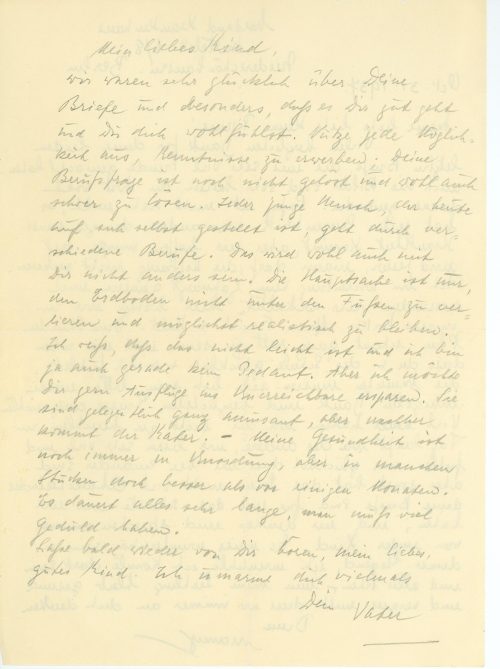 Mein liebes Kind,
wir waren sehr glücklich über Deine
Briefe und besonders, daß es Dir gut geht
und Du dich wohlfühlst. Nütze jede Möglich-
keit aus, Kenntnisse zu erwerben. Deine
Berufsfrage ist noch nicht gelöst und wohl auch
schwer zu lösen. Jeder junge Mensch, der heute
auf sich selbst gestellt ist, geht durch ver-
schiedene Berufe. Das wird wohl auch mit
Dir nicht anders sein. Die Hauptsache ist nur,
den Erdboden nicht unter den Füßen zu ver-
lieren und möglichst realistisch zu bleiben.
Ich weiß, daß das nicht leicht ist und ich bin
ja auch gerade kein Pedant. Aber ich möchte
Dir gern Ausflüge ins Unerreichbare ersparen. Sie
sind gelegentlich ganz amusant, aber nachher
kommt der Kater. – Meine Gesundheit ist
noch immer in Unordnung, aber in manchen
Stücken doch besser als vor einigen Monaten.
Es dauert alles sehr lange, man muß viel
Geduld haben.
Laße bald wieder von Dir hören, mein liebes,
gutes Kind. Ich umarme dich vielmals
Dein Vater